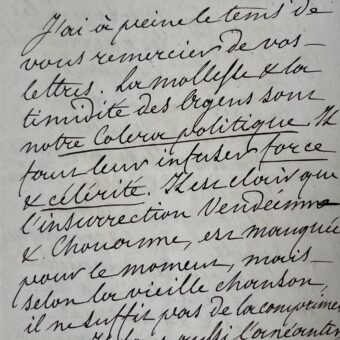 J'ai à peine le tems de
vous remercier de vos
lettres. La mollesse & la
timidité des Agens sont
notre Colera politique Il
faut leur infuser force
& célérité. Il est clair que
l'insurrection Vendéenne
& Chouanne, est manquée
pour le moment, mais
selon la vieille chanson,
il ne suffit pas de la comprimer
aussi l'anéantir